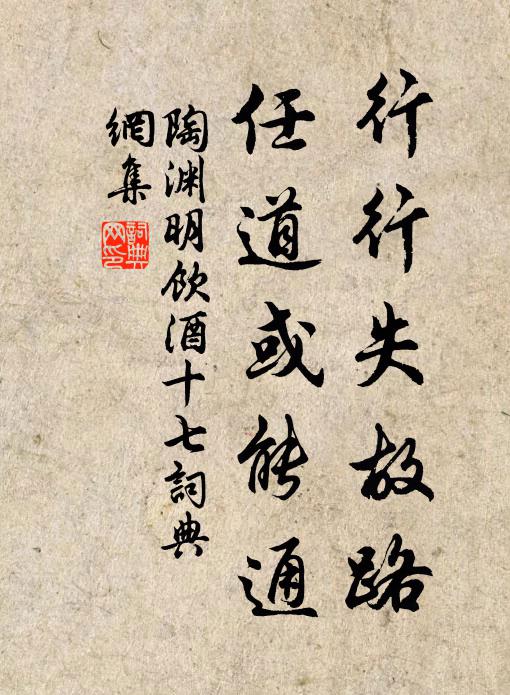 行行失故路
任道或能通
陶渊明飲酒十七詞典
網集
詞典
网印